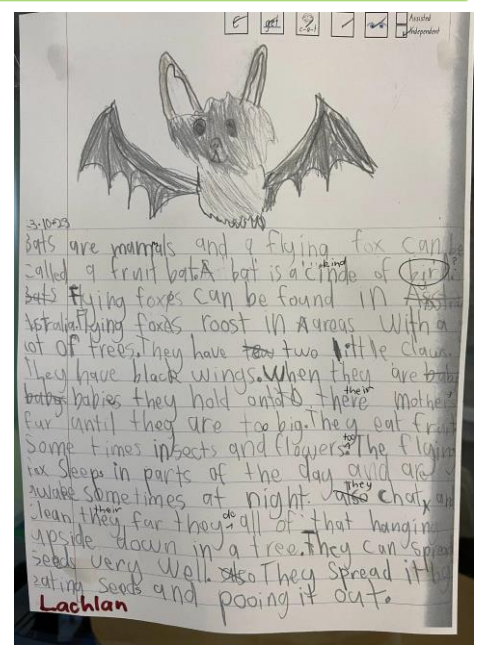 get
Assisted
Independent
3-10-23
Bats are mamals and a flying fox can be
called a fruit bat. A bat is a cinde kind of bird?
bats Flying foxes can be found in
Astralia. Flying foxes roost in Aareas with a
lot of trees. They have two little claws.
They have black wings. When they are
baby babies they hold onto there their mother's
fur until they are too big. They eat fruit
Some times insects and flowers too. The flying
fox Sleeps in parts of the day and are
awake sometimes at night. also They chat and
clean they their fur they do all of that hanging
upside down in a tree. They can spread
seeds very well. also They spread it by
eating seeds and pooing it out.
Lachlan